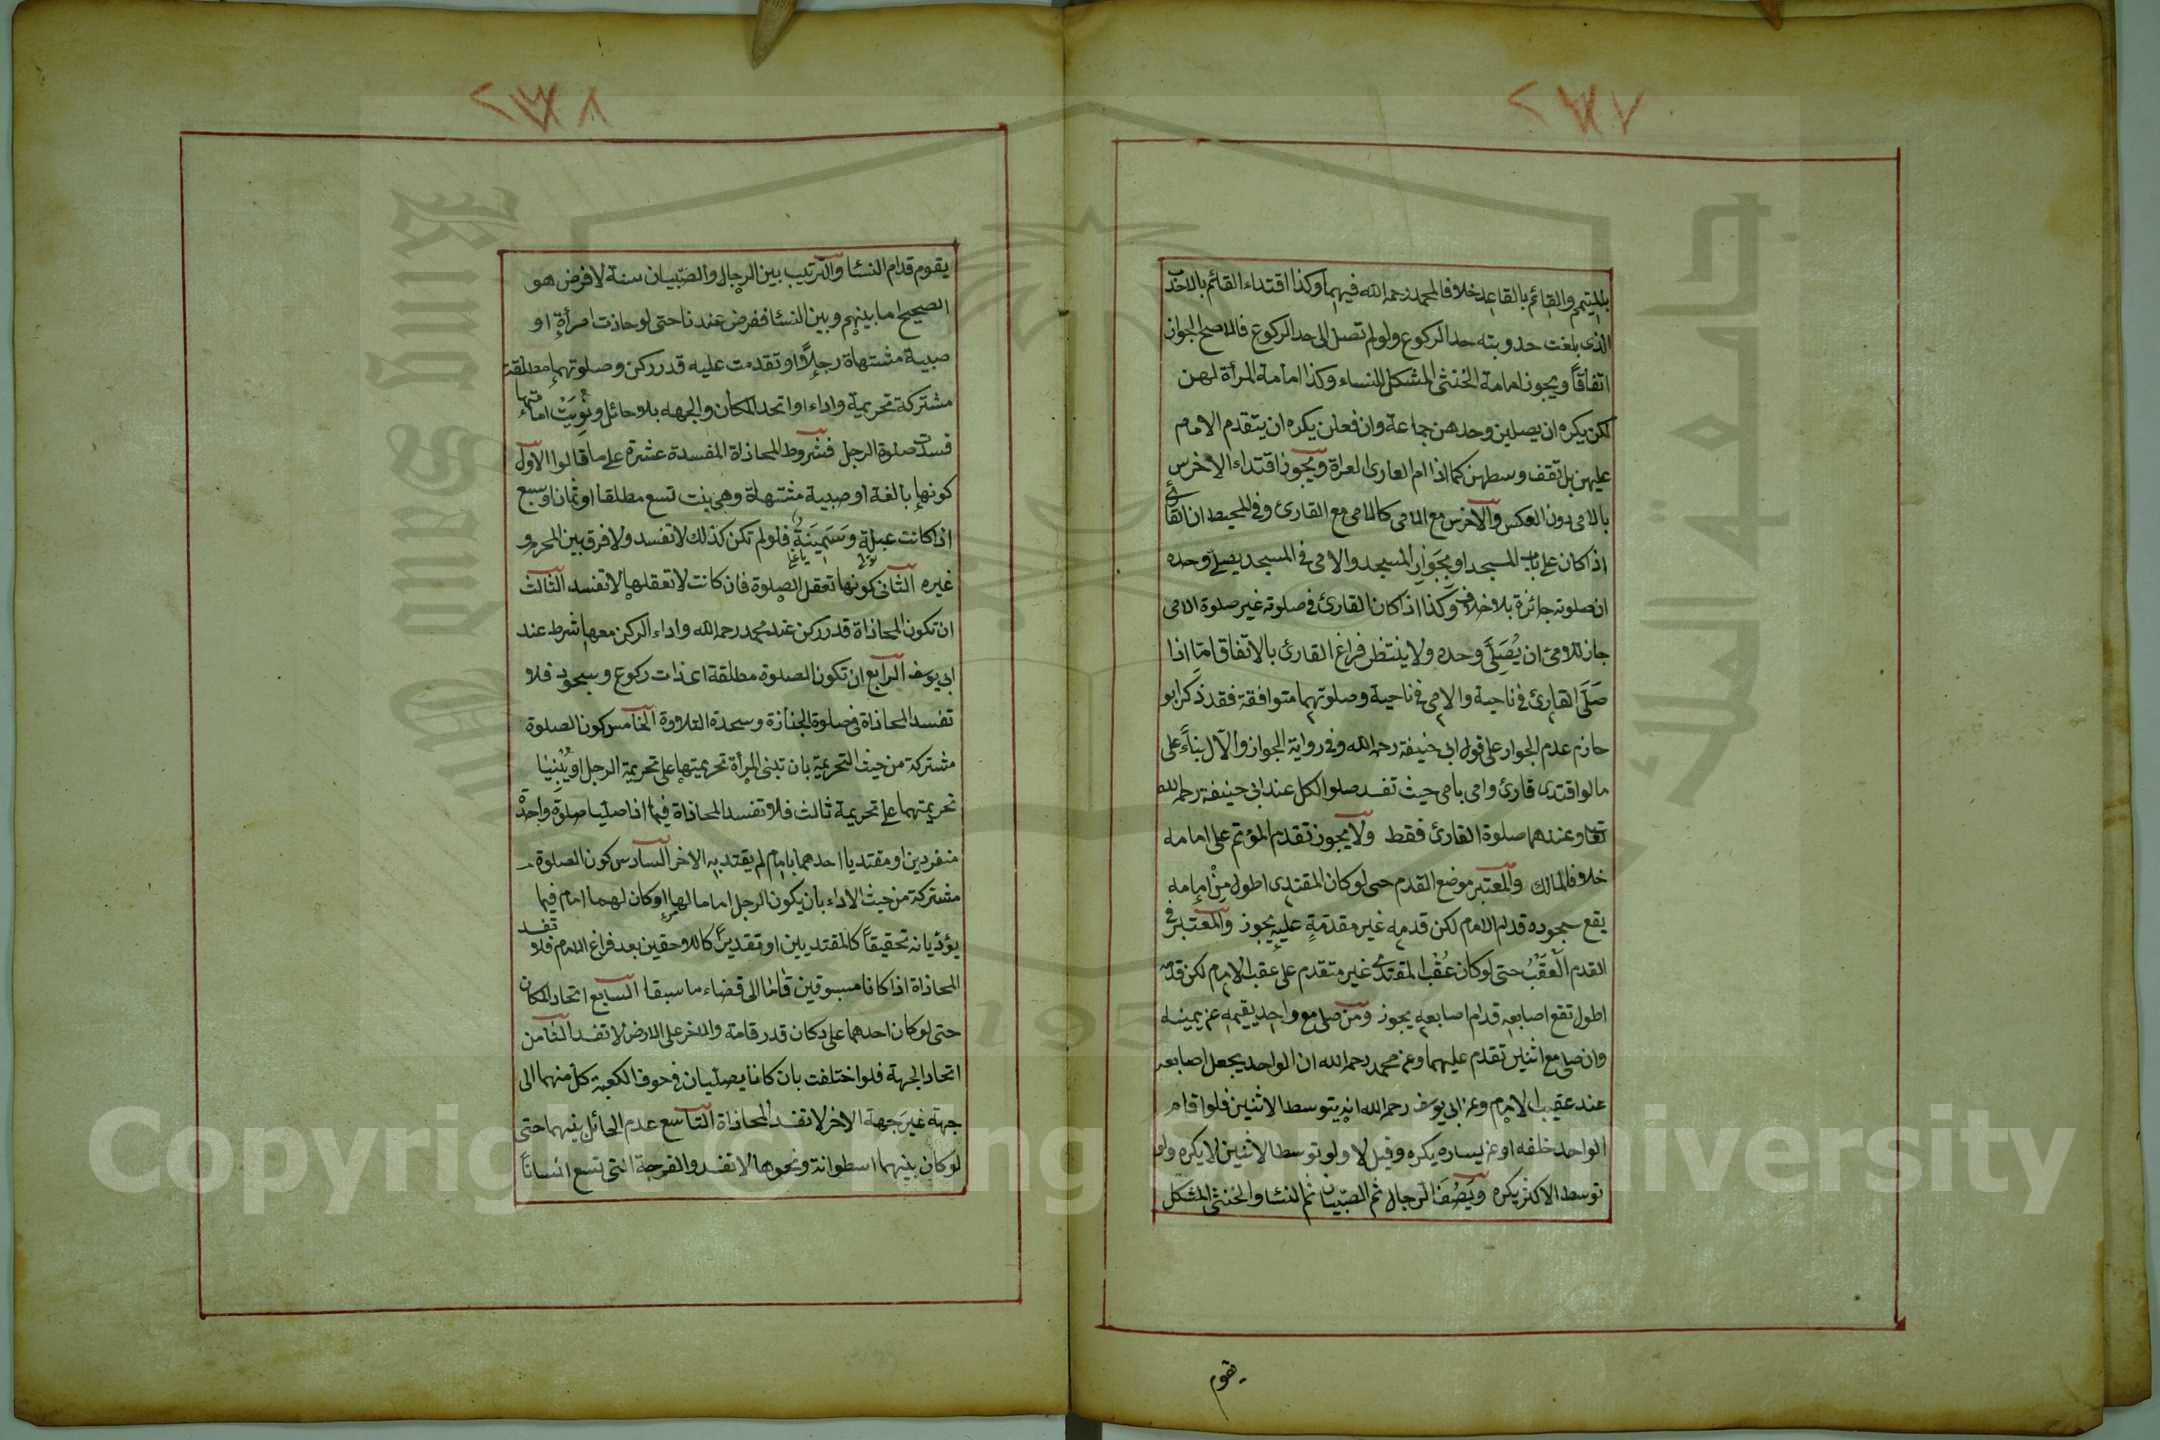 ٢٣٧
بالمتيمم والقائم بالقاعد خلافا لمحمد رحمه الله فيهما وكذا اقتداء القائم بالاحدب
الذى بلغت حدوبته حد الركوع ولو لم تصل الى حد الركوع فالاصح الجواز
اتفاقاً ويجوز امامة الخنثى المشكل للنساء وكذا امامة المرأة لهن
لكن يكره ان يصلين وحدهن جماعة وان فعلن يكره ان يتقدم الامام
عليهن بل تقف وسطهن كما اذا ام العارى العراة ويجوز اقتداء الاخرس
بالامى دون العكس والاخرس مع الامى كالامى مع القارئ وفى المحيط ان القارئ
اذا كان على باب المسجد او بجوار المسجد والامى فى المسجد يصلى وحده
ان صلوته جائزة بلا خلاف وكذا اذا كان القارئ فى صلوته غير صلوة الامى
جاز للامى ان يُصَلِّىَ وحده ولا ينتظر فراغ القارئ بالاتفاق امّا اذا
صَلَّى القارئ فى ناحية والامى فى ناحية وصلوتهما متوافقة فقد ذكر ابو
حازم عدم الجواز على قول ابى حنيفة رحمه الله وفى رواية الجواز والاول بناءً على
ما لو اقتدى قارئ وامى بامى حيث تفسد صلوا الكل عند ابى حنيفة رحمه الله
تعا وعندهما صلوة القارئ فقط ولا يجوز تقدم المؤتم على امامه
خلافا لمالك والمعتبر موضع القدم حتى لو كان المقتدى اطول مِنْ اِمامه
يقع سجوده قدام الامام لكن قدمه غير مقدمةٍ عليه يجوز والمعتبر فى
القدم الْعَقْبُ حتى لو كان عُقْب المقتدى غير متقدم على عقب الامام لكن قدمه
اطول تقع اصابعه قدام اصابعه يجوز ومن صلى مع واحد يقيمه عن يمينه
وان صلى مع اثنين تقدم عليهما وعن محمد رحمه الله ان الواحد يجعل اصابعه
عند عقيب الامام وعن ابى يوسف رحمه الله انه يتوسط الاثنين فلو اقام
الواحد خلفه او عن يساره يكره وقيل لا ولو توسط الاثنين لا يكره ولو
توسط الاكثر يكره ويَصُفُّ الرجال ثم الصبيان ثم النسا والخنثى المشكل
يقوم
٢٣٨
يقوم قدام النسا والترتيب بين الرجال والصّبيان سنة لا فرض هو
الصحيح اما بينهم وبين النسا ففرض عندنا حتى لو حاذت امرأة او
صبية مشتهاة رجلاً او تقدمت عليه قدر ركن وصلوتهما مطلقة
مشتركة تحريمة واداء واتحد المكان والجهة بلا حائل ونُوِيَتْ امامتها
فسدت صلوة الرجل فشروط المحاذاة المفسدة عشرة على ما قالوا الاول
كونها بالغة او صبية مشتهاة وهى بنت تسع مطلقا او ثمان او سبع
اذا كانت عبلة وَسَمِينَةً فلو لم تكن كذلك لا تفسد ولا فرق بين المحرم و
غيره الثانى كونها تعقل الصلوة فان كانت لا تعقلها لا تفسد الثالث
ان تكون المحاذاة قدر ركن عند محمد رحمه الله واداء الركن معها شرط عند
ابى يوسف الرابع ان تكون الصلوة مطلقة اى ذات ركوع وسجود فلا
تفسد المحاذاة فى صلوة الجنازة وسجدة التلاوة الخامس كون الصلوة
مشتركة من حيث التحريمة بان تبنى المرأة تحريمتها على تحريمة الرجل او يُبْنِيَا
تحريمتهما على تحريمة ثالث فلا تفسد المحاذاة فيما اذا صليا صلوة واحدة
منفردين او مقتديا احدهما بامام لم يقتد به الاخر السادس كون الصلوة
مشتركة من حيث الاداء بان يكون الرجل اماما لها او كان لهما امام فيما
يؤدّيانه تحقيقاً كالمقتديين او تقديرًا كاللاحقين بعد فراغ الامام فلا تفسد
المحاذاة اذا كانا مسبوقين قاما الى قضاء ما سبقا السابع اتحاد المكان
حتى لو كان احدهما على دكان قدر قامة والاخر على الارض لا تفسد الثامن
اتحاد الجهة فلو اختلفت بان كانا يصلّيان فى جوف الكعبة كل منهما الى
جهة غير جهة الاخر لا تفسد المحاذاة التاسع عدم الحائل بينهما حتى
لو كان بينهما اسطوانة ونحوها لا تفسد والفرجة التى تسع انساناً
Copyright © King Saud University
جامعة الملك
King Saud University
1957